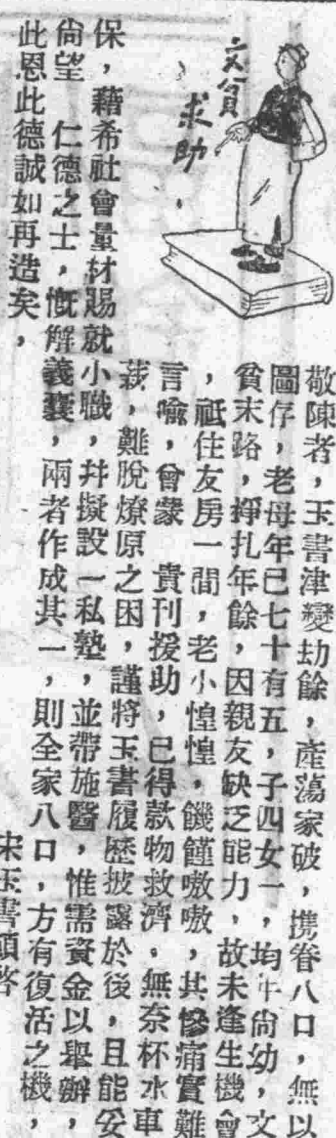 文貧
求助
敬陳者，玉書津變劫餘，產蕩家破，携眷八口，無以
圖存，老母年已七十有五，子四女一，均年尙幼，文
貧末路，掙扎年餘，因親友缺乏能力，故未逢生機會
，祗住友房一間，老小惶惶，饑饉嗷嗷，其慘痛實難
言喩，曾蒙　貴刊援助，已得款物救濟，無奈杯水車
薪，難脫燎原之困，謹將玉書履歷披露於後，且能妥
保，藉希社會量材賜就小職，幷擬設一私塾，並帶施醫，惟需資金以舉辦，
尙望　仁德之士，慨解義囊，兩者作成其一，則全家八口，方有復活之機，
此恩此德誠如再造矣，
宋玉書頓啓